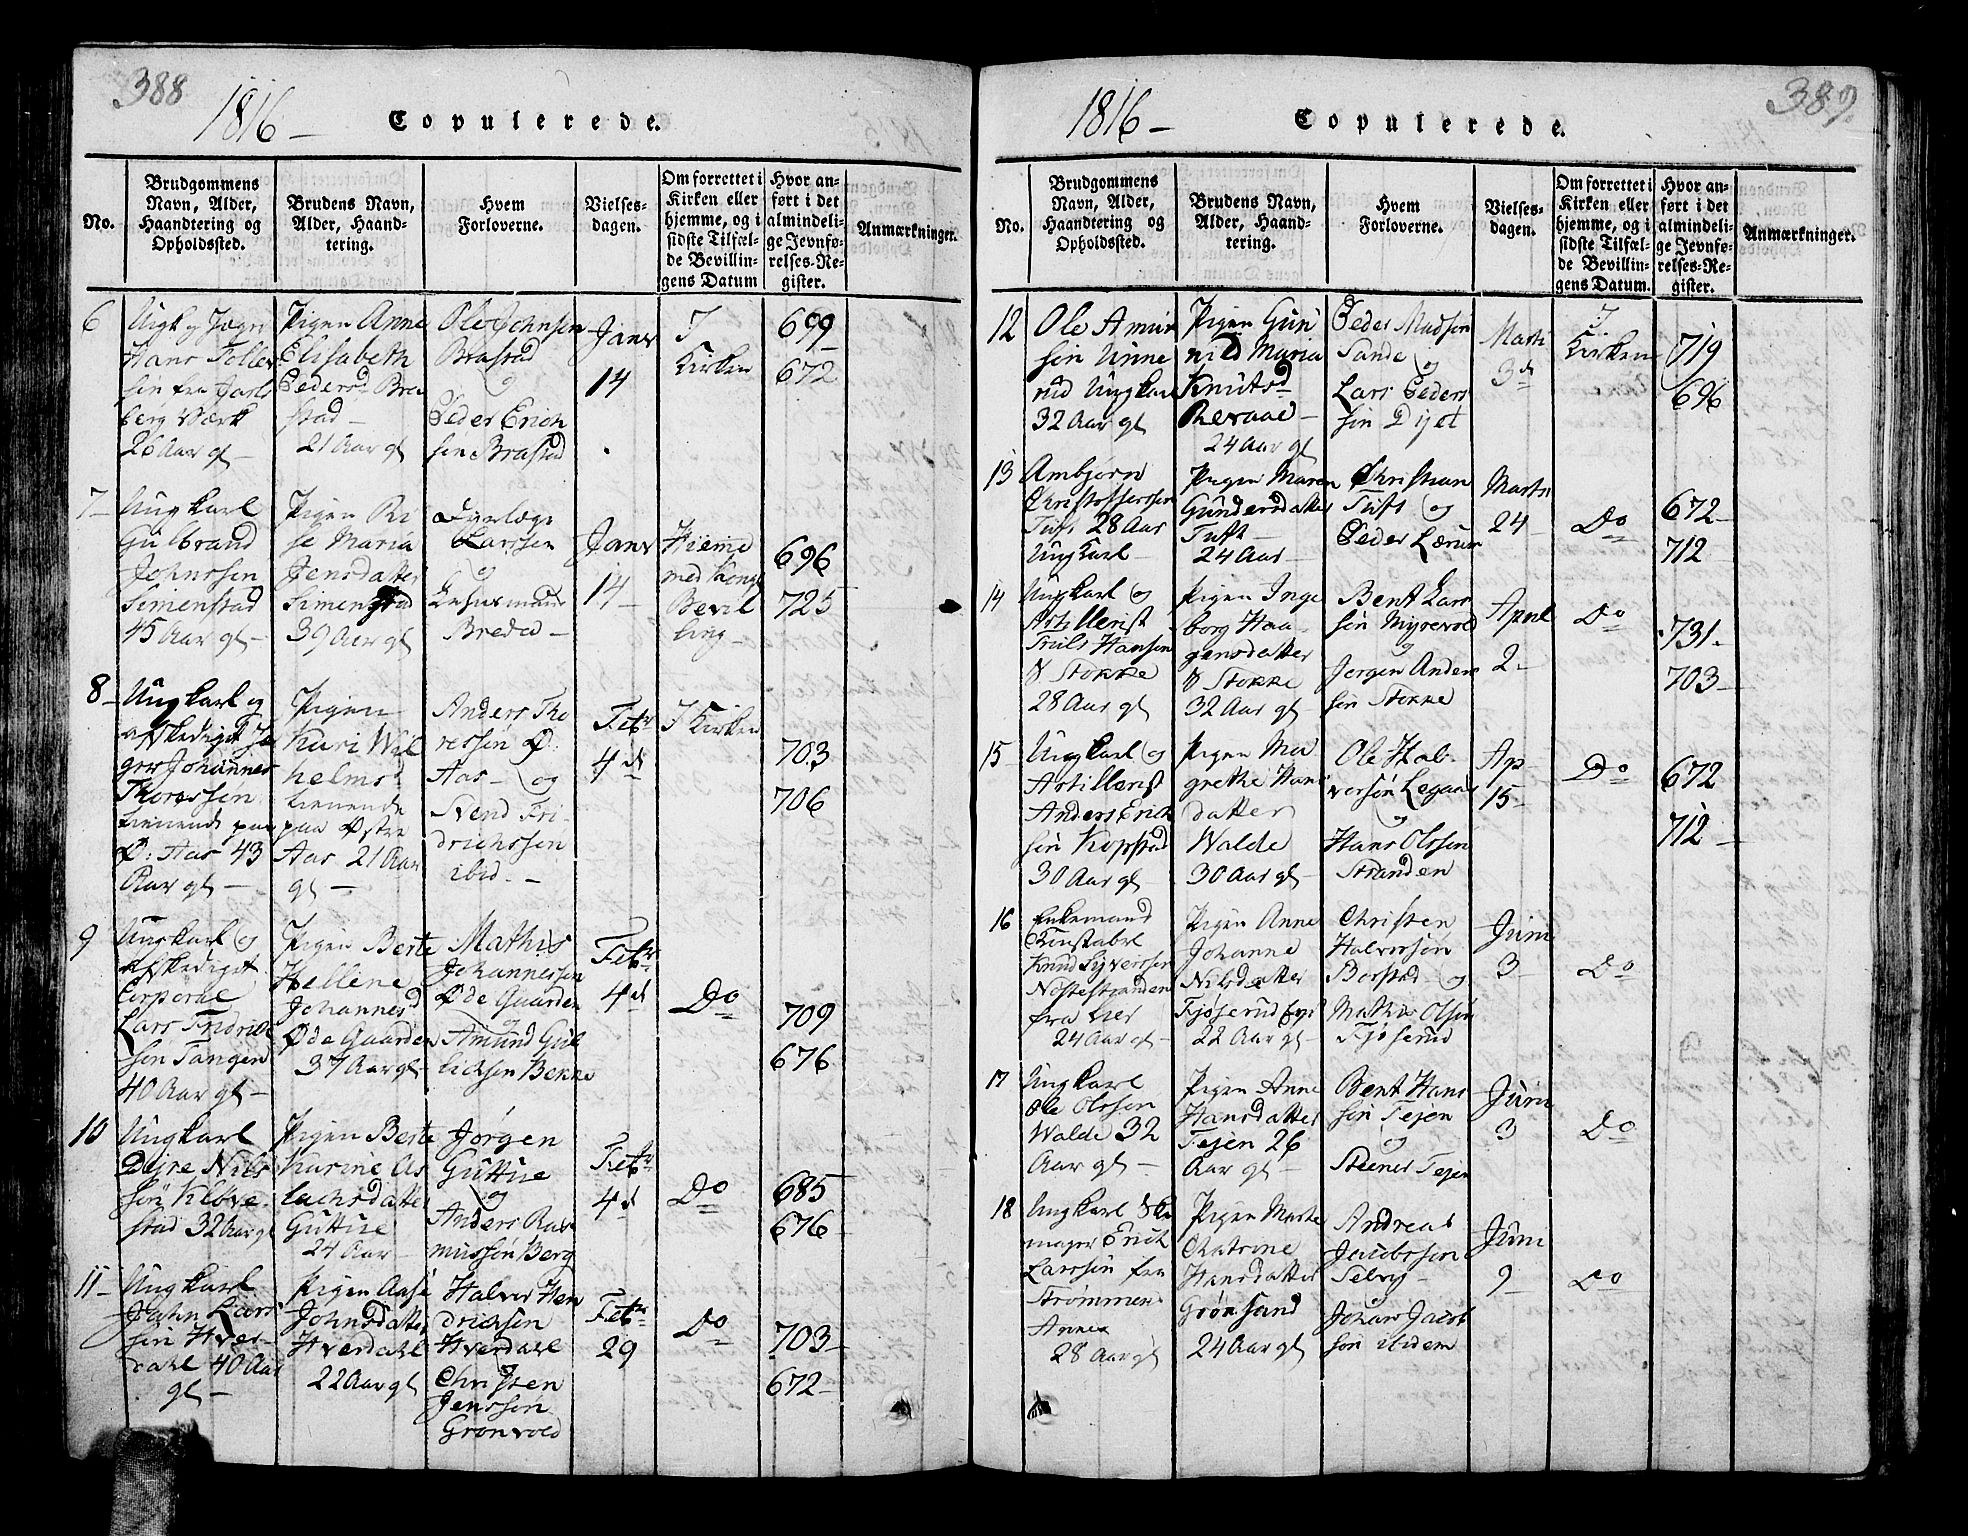 388
1816 —
Copulerede.
No.
Brudgommens
Navn, Alder,
Haandtering og
Opholdssted.
Brudens Navn,
Alder, Haand-
tering.
Hvem
Forloverne.
Vielses-
dagen.
Om forrettet i
Kirken eller
hjemme, og i
sidste Tilfæl-
de Bevillin-
gens Datum
Hvor an-
ført i det
almindeli-
ge Jevnfø-
relses-Re-
gister.
Anmærkninger.
6
Hans Toller
sön fra Jarls
berg Værk
26 Aar gl —
Pigen Anne
Elisabeth
Pedersd Bra
stad —
21 Aar gl
Ole Johnsen
Brastad
og
Peder Erich
sön Brastad
Janr
14
I
Kirken
699
672
7 —
Ungkarl
Gulbrand
Johnssön
Simenstad
45 Aar gl —
Pigen Ri
se Maria
Jensdatter
Simenstad
39 Aar gl
Larssen
og
Breded —
Janr
14 —
Hieme
med Kongl
Bevil
ling —
696
725
8 —
Ungkarl og
afskediget Jæ
ger Johannes
Thoressön
tienende paa
Ø: Aas 43
Aar gl —
Pigen
Kari Wil
helmsd
tienende
paa Østre
Aas 21 Aar
gl —
Anders Tho
ressön Ø:
Aas — og
Svend Fri-
drichssön
ibid. —
Febr
4d
I Kirken
703
706
9
Ungkarl og
afskediget
Corporal
Lars Fridrich
sön Tangen
40 Aar gl —
Pigen Berte
Hellene
Johannesd
Øde Gaarden
37 Aar gl —
Mathis
Johannessen
Øde Gaarden
og
Amund Gul
lichsön Bekke
Febr
4d
Do
709
676
10
Ungkarl
Dyre Nils
sön Kløve
stad 32 Aar gl
Pigen Berte
Karine As
lachsdatter
Guttue
24 Aar —
Jörgen
Guttue
og
Anders Ras
mussön Berg
Febr
4d
Do
685
676
11 —
Ungkarl
John Lars
sön Hver-
dahl 40 Aar
gl —
Pigen Aase
Johnsdatter
Hverdahl
22 Aar gl
Halvor Hen
drichsen
Hverdahl
og
Christen
Jenssön
Grönvold
Febr
29
Do
703 —
672 —
389.
1816 —
Copulerede.
No.
Brudgommens
Navn, Alder,
Haandtering og
Opholdssted.
Brudens Navn,
Alder, Haand-
tering.
Hvem
Forloverne.
Vielses-
dagen.
Om forrettet i
Kirken eller
hjemme, og i
sidste Tilfæl-
de Bevillin-
gens Datum.
Hvor an-
ført i det
almindeli-
ge Jevnfø-
relses-Re-
gister.
Anmærkninger.
12
Ole Amun
sön Unne
rud Ungkarl
32 Aar gl
Pigen Gun
nild Maria
Knutsd
Revaae —
24 Aar gl
Peder Madsen
Sande
og
Lars Peders
sön Dyet
Marti
3d
I
Kirken
719
696
13
Ambjørn
Christoffersen
Tuft 28 Aar
Ungkarl —
Pigen Maren
Gundersdatter
Tuft —
24 Aar —
Christian
Tuft og
Peder Lærum
Marti
24
Do
672 —
712
14
Ungkarl og
Artillerist
Truls Hansen
V Stokke
28 Aar gl
Pigen Inge
borg Haa-
gensdatter
V Stokke
32 Aar gl —
Bent Lars
sön Myrevold
og
Jørgen Anders
sön Stokke
April
2 —
Do
731 —
703 —
15
Ungkarl og
Artillerist
Anders Erich
sön Kopstad
30 Aar gl —
Pigen Ma
grethe Hans
datter
Walde
30 Aar gl —
Ole Hal-
versön
og
Hans Olssen
Stranden
Ap
15 —
Do
672
712 —
16
Enkemand
Constabel
Knud Syverssen
Nøstestranden
fra Lier
24 Aar gl —
Pigen Anne
Johanne
Nilsdatter
Fjøserud
22 Aar gl —
Christen
Halversön
Borstad og
Mathis Olsön
Fjøserud
Juni
3
Do
17
Ungkarl
Ole Olssen
Walde 32
Aar gl —
Pigen Anne
Hansdatter
Tejen 26
Aar gl —
Bent Hans
sön Tejen
og
Steener Tejen
Juni
3
Do
18
Ungkarl Sko
mager Erich
Larssön fra
Strømmens
Annex
28 Aar gl
Pigen Marte
Chatrine
Hansdatter
Grønsand
24 Aar gl
Andreas
Jacobssen
Selvig
Johan Jacob
sön ibidem
Juni
9 —
Do